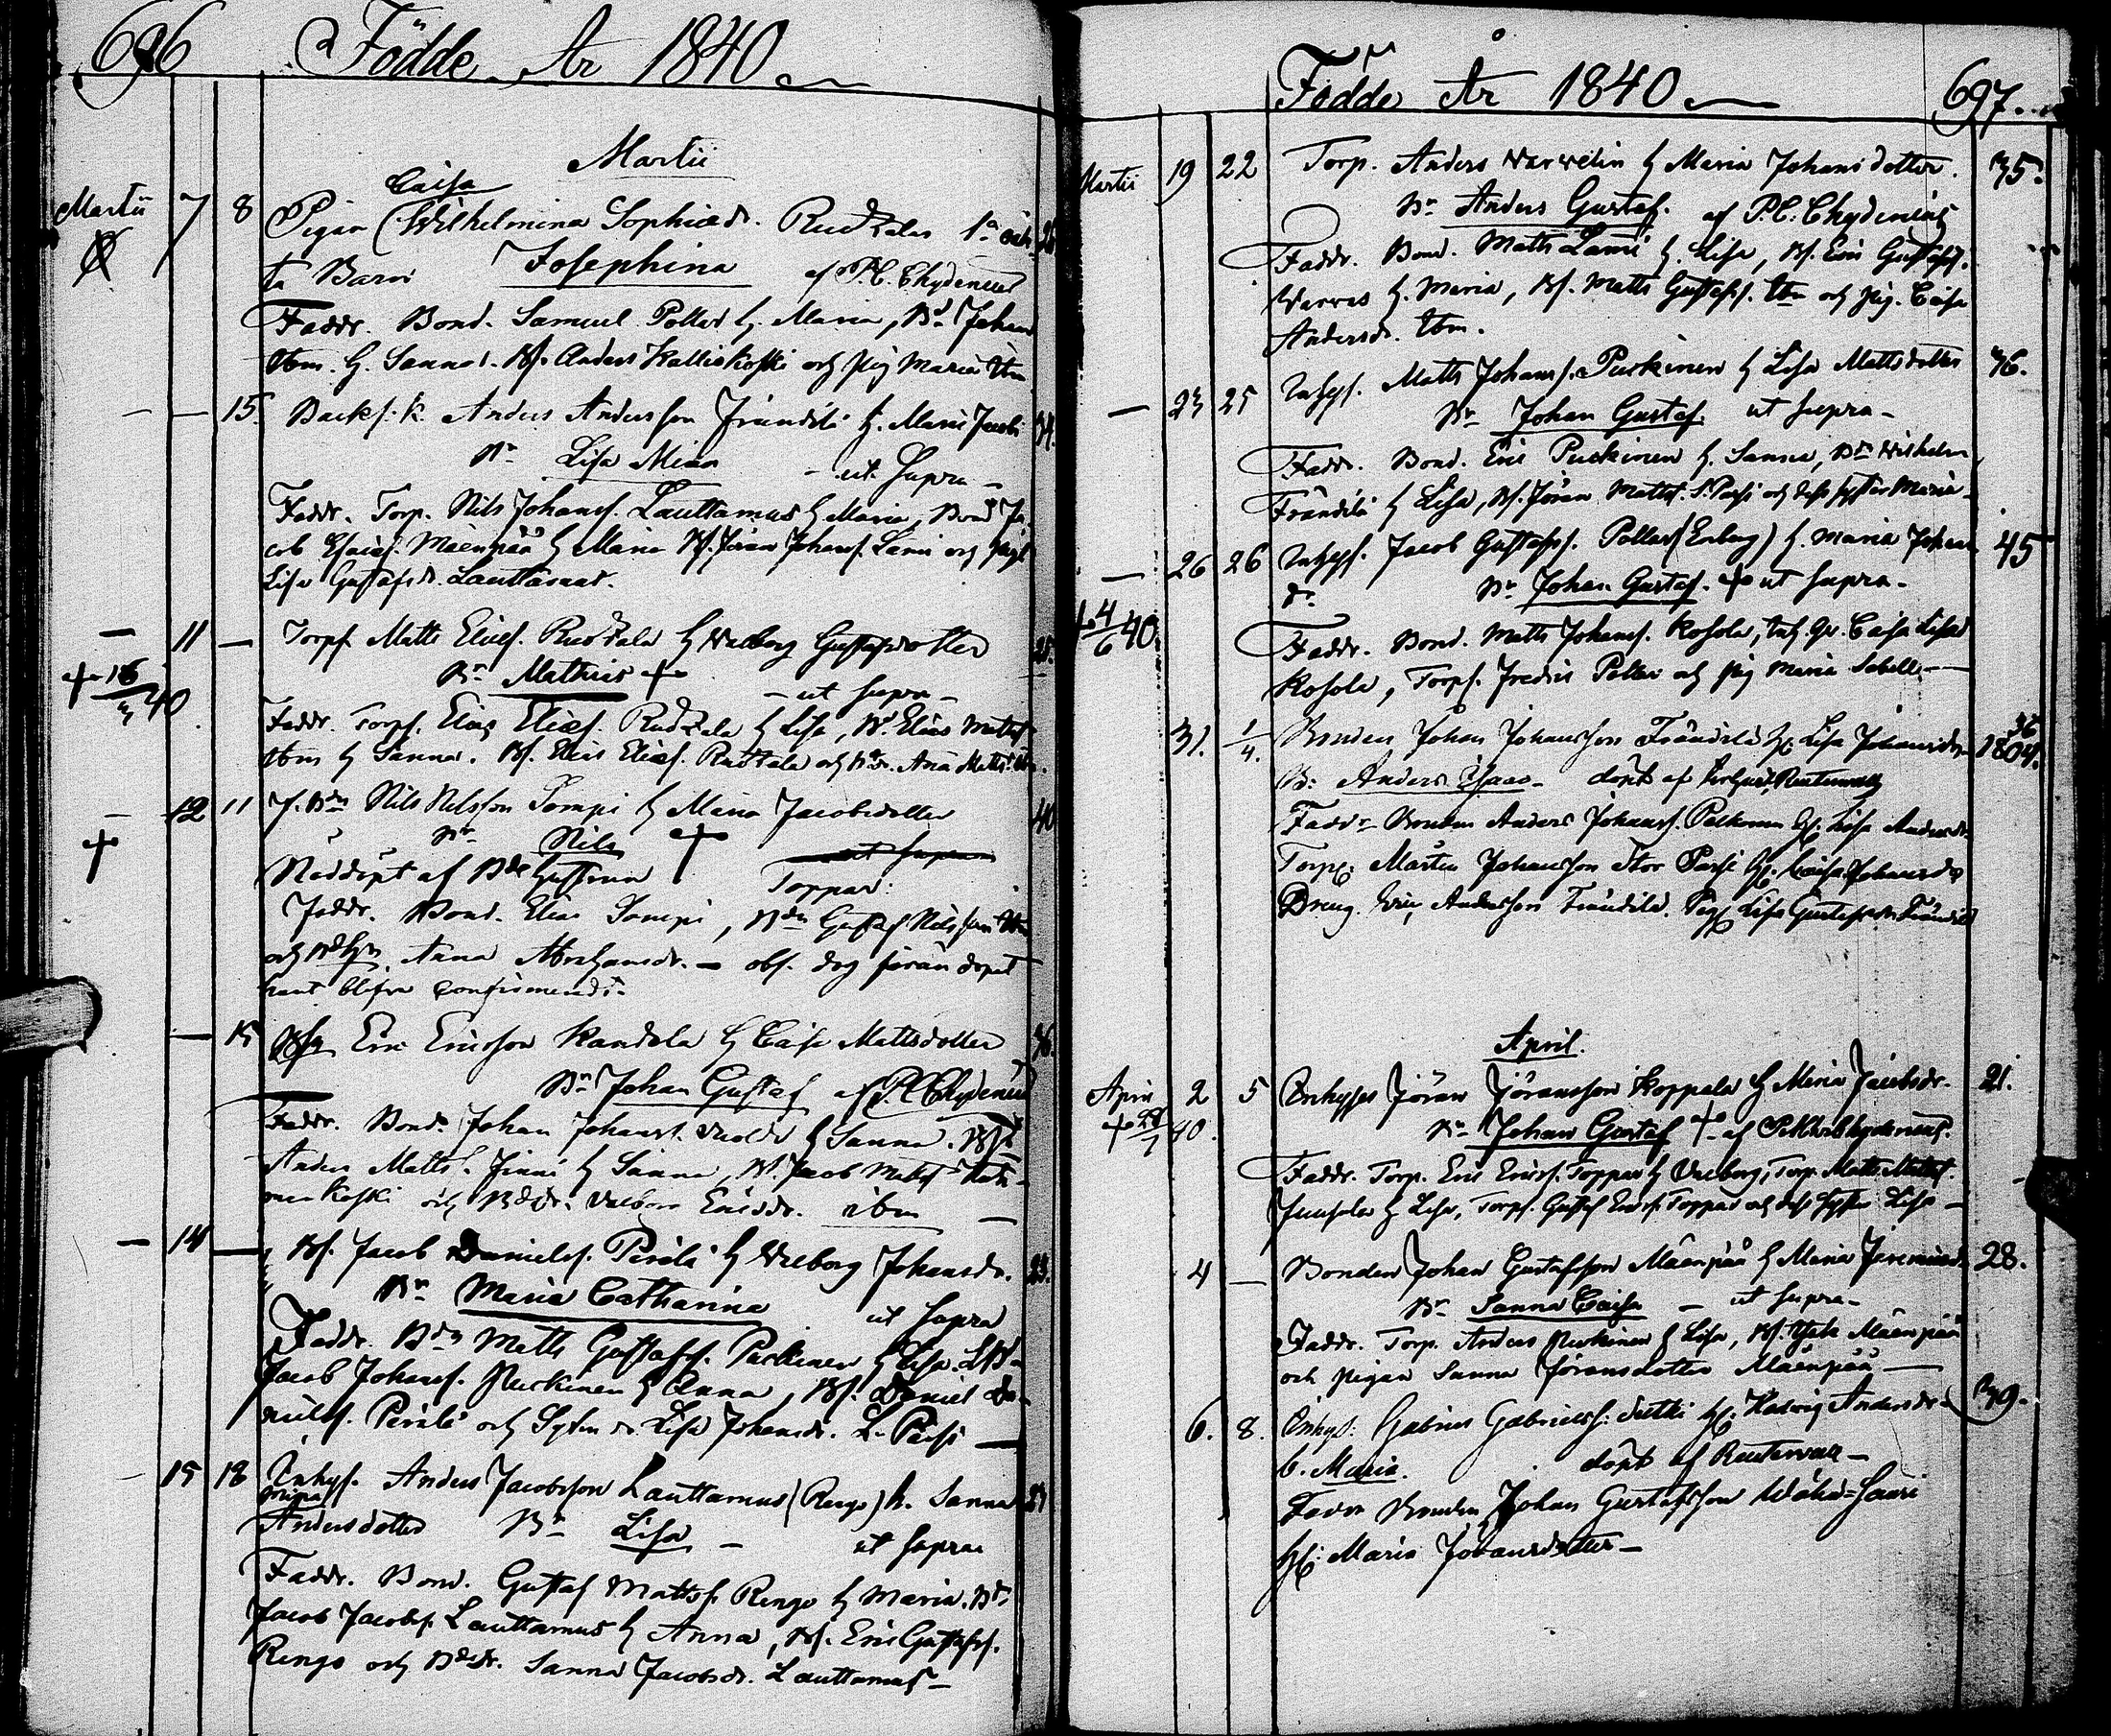 696 Födde År 1840
Martii
Caisa
Martii 7 8 Pigan Wilhelmina Sophia dr. Rudzala 1a oäk-
ta Barn Josephina af P.C. Chydenius
Faddr. Bond. Samuel Pollar h. Maria, Bd Johan
ibm. h. Sanna. Bs. Anders Kalliokoski och pig Maria ibm
— — 15. Backs. k. Anders Andersson Frändilä h. Maria Jacobs
Bn Lisa Mina — ut supra —
Faddr. Torp. Nils Johanss. Lauttamus h Maria, Bond Ja-
cob Esaias. Mäenpää h Maria Bs. Jöran Johanss. Lami och pigan
Lisa Gustafsdr. Lauttamus.
— 11 — Torps Matts Eliæs. Rudzala h Walborg Gustafsdotter 25.
+ 16/3 40 Bn Mathias + — ut supra —
Faddr. Torps. Elias Eliæs. Rudzala h Lisa, Bd. Elias Mattss
ibm h Sanna. Bs. Elias Eliæs. Rudzala och Bdr. Ana Matts ibm.
— 12 11 Bdn Nils Nilsson Sompi h Maria Jacobsdotter 40
+ Bn Nils + ut supra
Nöddöpt af Bde Toppar:
Faddr. Bond. Elias Sompi, Bdn Gustaf Nilsson ibm
och Anna Abrahamsdr. — obs. dog förän dopet
hant blifva confirmeradt.
— 15 Bdn Eric Ericsson Kandola h Caisa Mattsdotter 36.
Bn Johan Gustaf af P.C. Chydenius
Faddr. Bond. Johan Johanss. h Sanna. Bdn
Anders Matts. Finni h Sanna, Bd. Jacob Matts
koski och Bdr. Valborg Ericsdr. ibm —
— 14 — Bs. Jacob Danielss. Perälä h Walborg Johansdr. 23.
Bn Maria Catharina ut supra
Faddr. Bdn Matts Gustafss. Puskinen h Lisa
Jacob Johanss. Puskinen h Anna, Bs. Daniel Da-
nielss. Perälä och Lisa Johansdr. L. Passi —
— 15 18 Inhys. Anders Jacobsson Lauttamus (Rengo) h. Sanna 27
Andersdotter Bn Lisa — ut supra
Faddr. Bond. Gustaf Mattss. Rengo h Maria. Bdn
Jacob Jacobss. Lauttamus h Anna, Bs. Eric Gustafss.
Rengo och Bdsdr. Sanna Jacobsdr. Lauttamus —
Födde År 1840 697.
Martii 19 22 Torp. Anders Warvelin h Maria Johansdotter. 35.
Bn Anders Gustaf. af P.C. Chydenius
Faddr. Bond. Matts Lami h. Lisa, Bs. Eric Gustafss.
Warvas h. Maria, Bs. Matts Gustafss. ibm och pig. Caisa
Andersdr. ibm.
— 23 25 Inhys. Matts Johanss. Puskinen h Lisa Mattsdotter 36.
Bn Johan Gustaf. ut supra —
Faddr. Bond. Eric Puskinen h. Sanna, Bdn Wilhelm
Frändilä h Lisa, Bs. Jöran Mattss. S. Passi och dess syster Maria —
— 26 26 Inhys. Jacob Gustafss. Pollar (Enberg) h. Maria Johans 45
dr. Bn Johan Gustaf. + ut supra —
+ 4/6 40
Faddr. Bond. Matts Johanss. Kosola, Caisa Lisa
Kosola, Torps. Fredric Pollar och pig Maria Sabell —
31. 1/4. Bonden Johan Johansson Frändilä h: Lisa Johansdr. 36 1804.
B: Anders Isaac — döpt af Reuterwall
Faddr Bonden Anders Johanss. Palkonen h: Lisa Andersdr
Torp: Mårten Johansson Stor Passi h: Caisa Johansdr
Dreng. Eric Andersson Frändilä. Pig: Lisa Gustafsdr. Frändilä
April.
April 2 5 Inhyses Jöran Jöransson Koppala h Maria Jacobsdr. 21.
+ 29/7 40. Bn Johan Gustaf + af P. C. Chydenius.
Faddr. Torp. Eric Ericss. Toppar h Valborg, Torp. Matts Mattss.
h Lisa, Torps. Gustaf Ericss. Toppar och dess syster Lisa —
4 — Bonden Johan Gustafsson Mäenpää h Maria Jeremiædr. 28.
Bn Sanna Caisa — ut supra —
Faddr. Torp. Anders Puskinen h Lisa, Bs. Isak Mäenpää
och pigan Sanna Jöransdotter Mäenpää —
6. 8. Inhys: Gabriel Gabrielss: h: Hedvig Andersdr. 39.
b. Maria. döpt af Reuterwall —
Faddr Bonden Johan Gustafsson Wähä-Saari
h: Maria Johansdotter —